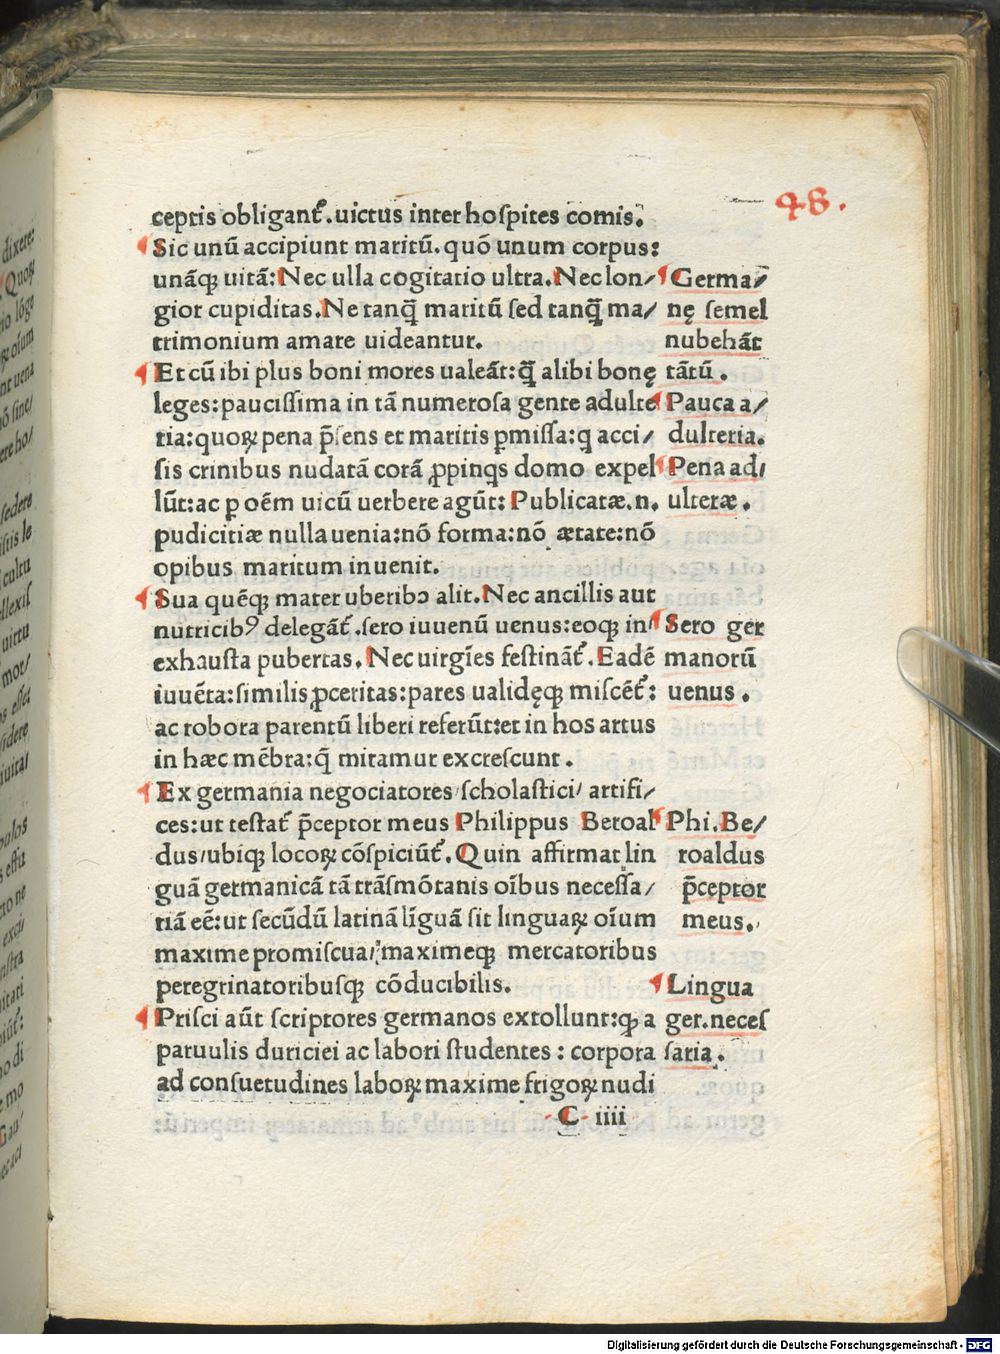 48.
ceptis obligant̃. uictus inter hoſpites comis.
Sic unũ accipiunt maritũ. quõ unum corpus:
unãqꝫ uitã: Nec ulla cogitatio ultra. Nec lon/
gior cupiditas. Ne tanq̃ maritũ ſed tanq̃ ma/
trimonium amare uideantur.
Et cũ ibi plus boni mores ualeãt: q̃ alibi bonę
leges: pauciſſima in tã numeroſa gente adulte
ria: quoꝝ pena p̃ſens et maritis ꝑmiſſa: q acci/
ſis crinibus nudatã corã ꝓpinqs domo expel
lũt: ac ꝑ oẽm uicũ uerbere agũt: Publicatæ. n.
pudicitiæ nulla uenia: nõ forma: nõ ætate: nõ
opibus maritum inuenit.
Sua quẽqꝫ mater uberibꝰ alit. Nec ancillis aut
nutricibꝰ delegãt̃. ſero iuuenũ uenus: eoqꝫ in
exhauſta pubertas. Nec uirgĩes feſtinãt̃. Eadẽ
iuuẽta: ſimilis ꝓceritas: pares ualidęqꝫ miſcẽt̃:
ac robora parentũ liberi referũt: et in hos artus
in hæc mẽbra: q̃ miramur excreſcunt.
Ex germania negociatores/ ſcholaſtici/ artifi/
ces: ut teſtat̃ p̃ceptor meus Philippus Beroal
dus/ ubiqꝫ locoꝝ cõſpiciũt̃. Quin affirmat lin
guã germanicã tã trãſmõtanis oĩbus neceſſa/
riã eẽ: ut ſecũdũ latinã lĩguã ſit linguaꝝ oĩum
maxime promiſcua/ maximeqꝫ mercatoribus
peregrinatoribuſqꝫ cõducibilis.
Priſci aũt ſcriptores germanos extollunt: qꝫ a
paruulis duriciei ac labori ſtudentes: corpora
ad conſuetudines laboꝝ maxime frigoꝝ nudi
C iiii
Germa/
nę ſemel
nubebãt
tãtũ.
Pauca a/
dulteria.
Pena ad/
ulteræ.
Sero ger
manorũ
uenus.
Phi. Be/
roaldus
p̃ceptor
meus.
Lingua
ger. neceſ
ſaria.
Digitalisierung gefördert durch die Deutsche Forschungsgemeinschaft - DFG